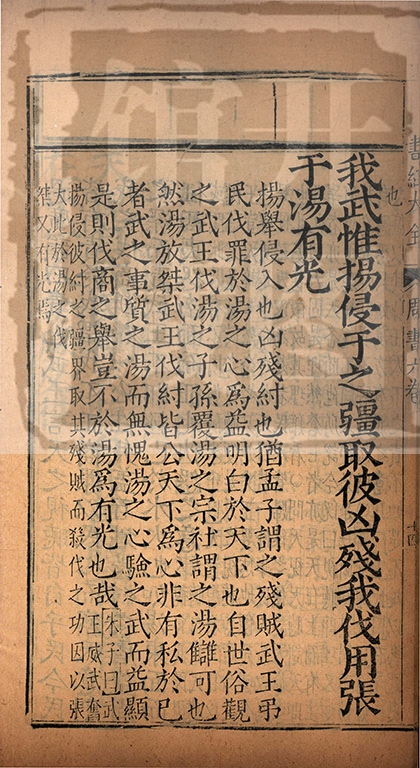 也
我武惟揚侵于之疆取彼凶殘我伐用張
于湯有光
揚舉侵入也凶殘紂也猶孟子謂之殘賊武王弔
民伐罪於湯之心為益明白於天下也自世俗觀
之武王伐湯之子孫覆湯之宗社謂之湯讎可也
然湯放桀武王伐紂皆公天下為心非有私於已
者武之事質之湯而無愧湯之心驗之武而益顯
是則伐商之舉豈不於湯為有光也哉
朱子曰武
王威武奮
揚侵彼紂之疆界取其殘賊而殺伐之功因以張
大比於湯之伐
桀又有光焉